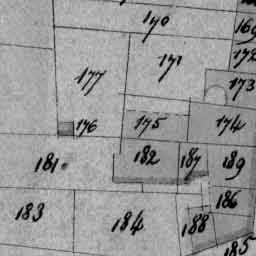 170
169
171
172
177
173
176
175
174
181
182
187
189
186
183
184
188
185